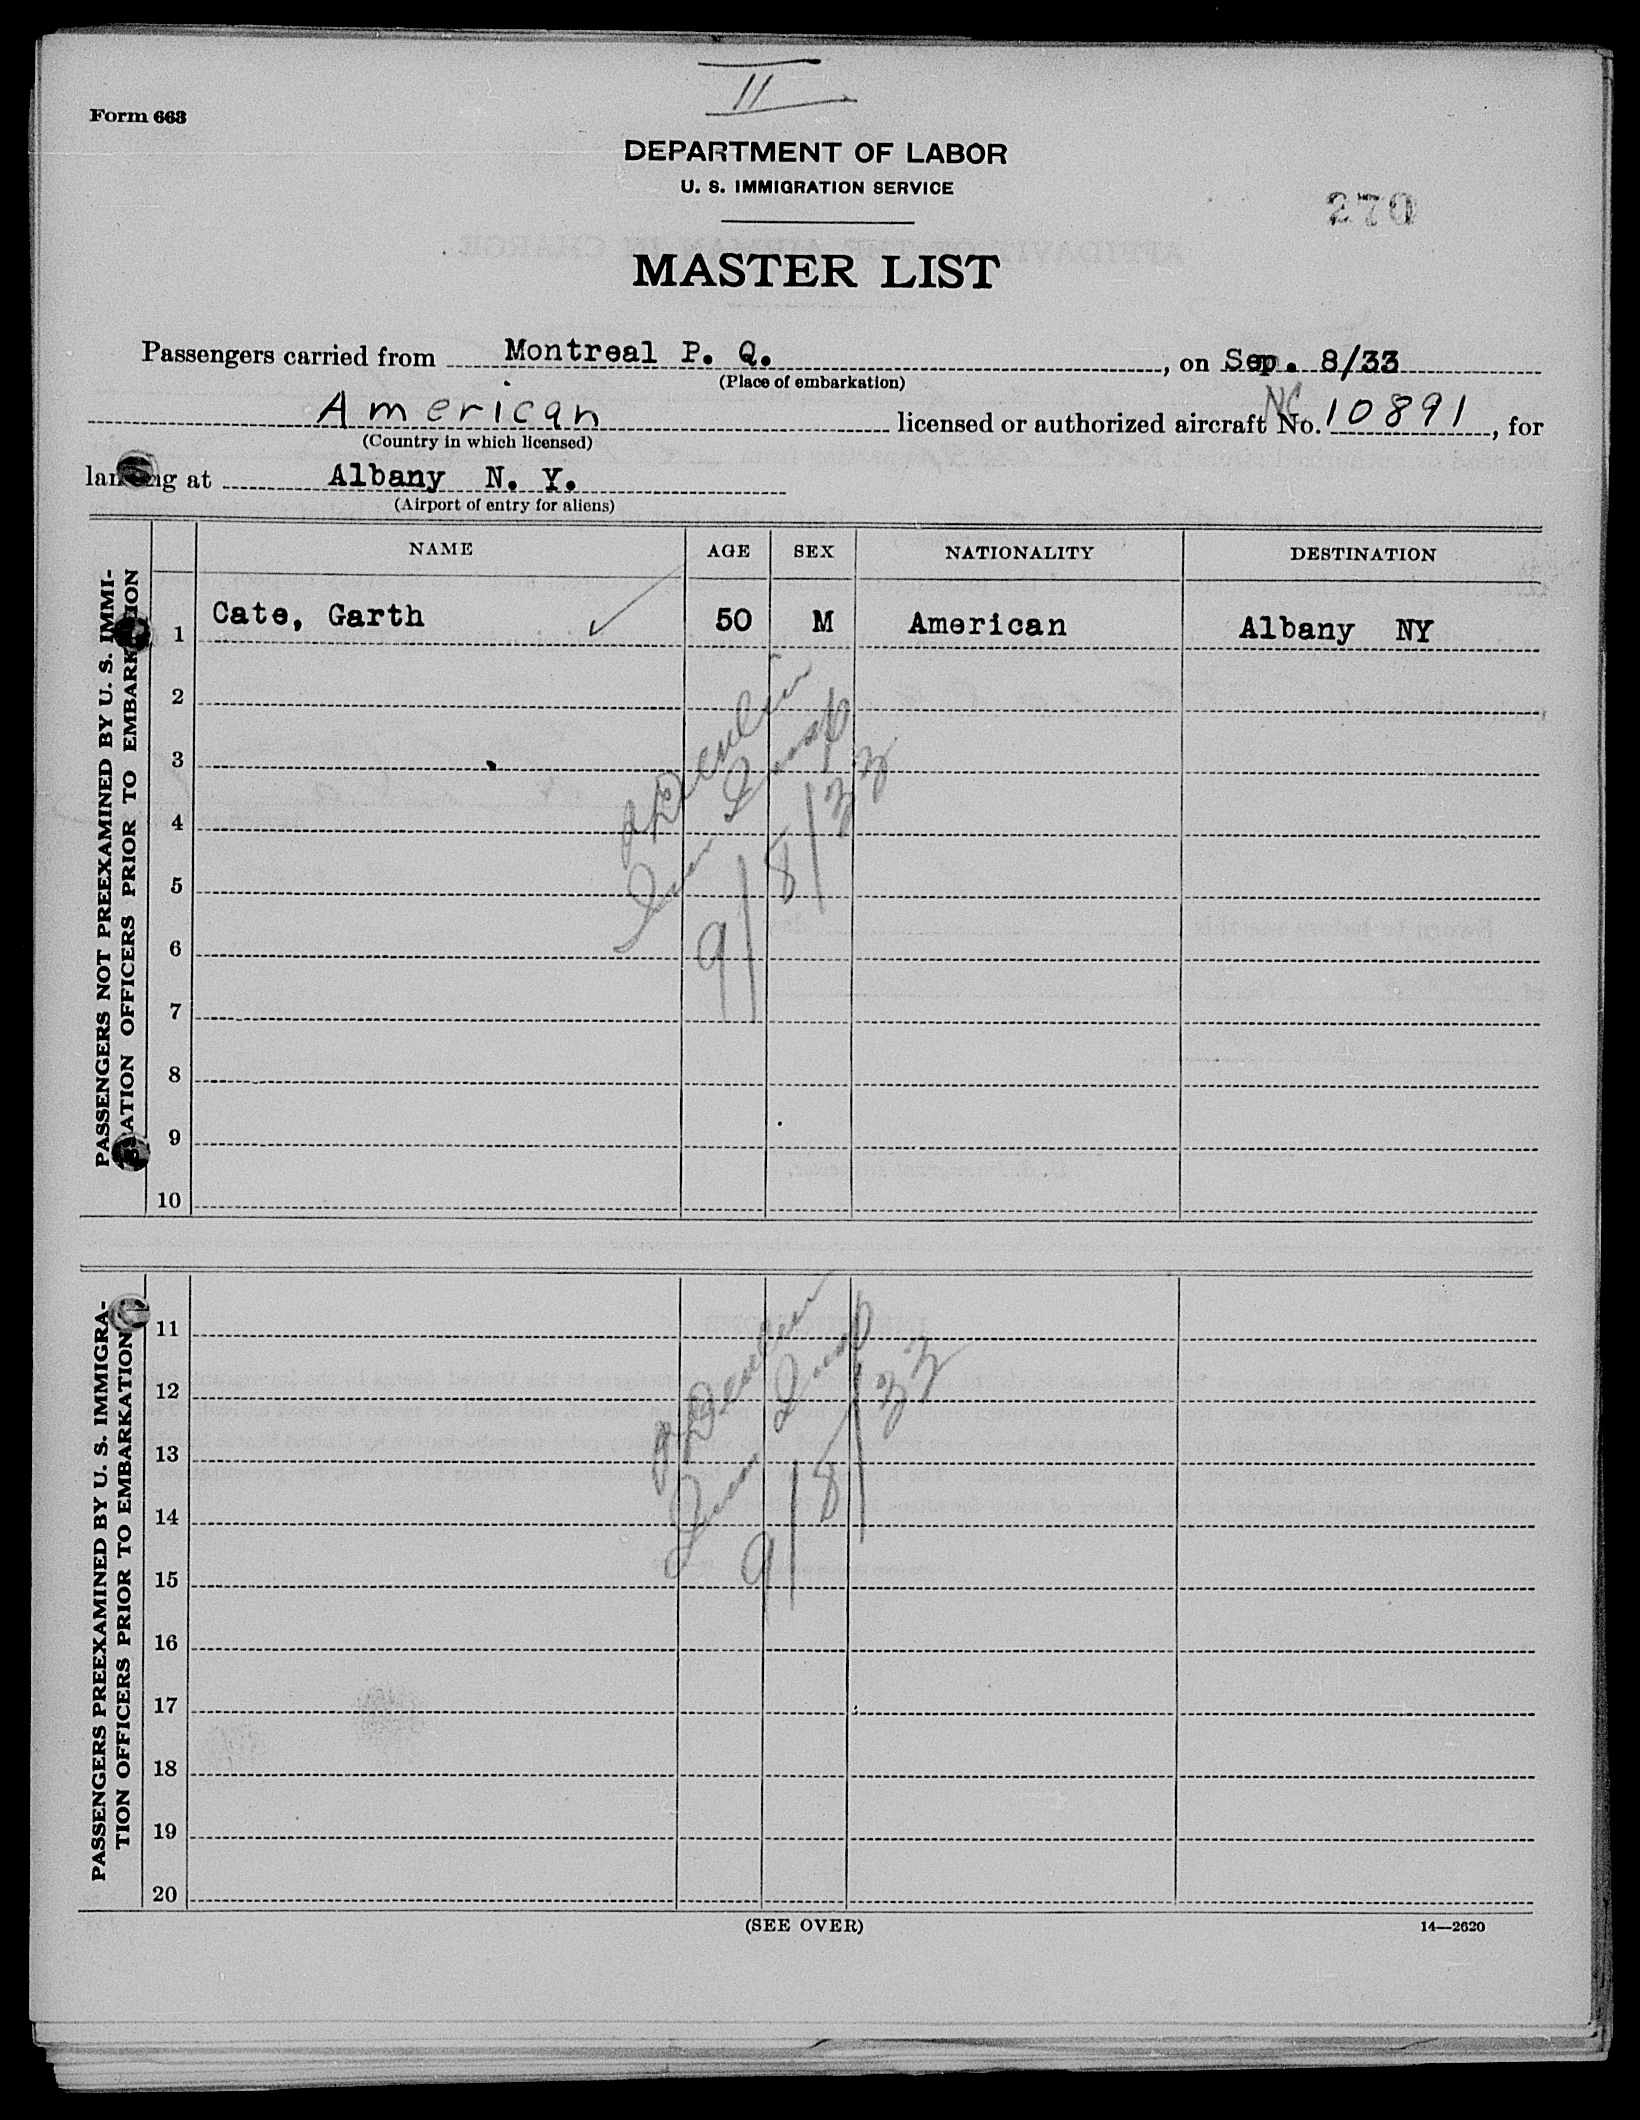 11
Form 663
DEPARTMENT OF LABOR
U. S. IMMIGRATION SERVICE
270
MASTER LIST
Passengers carried from Montreal P. Q. , on Sep. 8/33
(Place of embarkation)
American licensed or authorized aircraft NC No. 10891, for
(Country in which licensed)
landing at Albany N. Y.
(Airport of entry for aliens)
PASSENGERS NOT PREEXAMINED BY U. S. IMMI-
GRATION OFFICERS PRIOR TO EMBARKATION
NAME AGE SEX NATIONALITY DESTINATION
1 Cate, Garth ✓ 50 M American Albany NY
2
3
4
5
6
7
8
9
10
Devlin
Insp
9/8/33
PASSENGERS PREEXAMINED BY U. S. IMMIGRA-
TION OFFICERS PRIOR TO EMBARKATION
11
12
13
14
15
16
17
18
19
20
Devlin
Insp
9/8/33
(SEE OVER)
14—2620